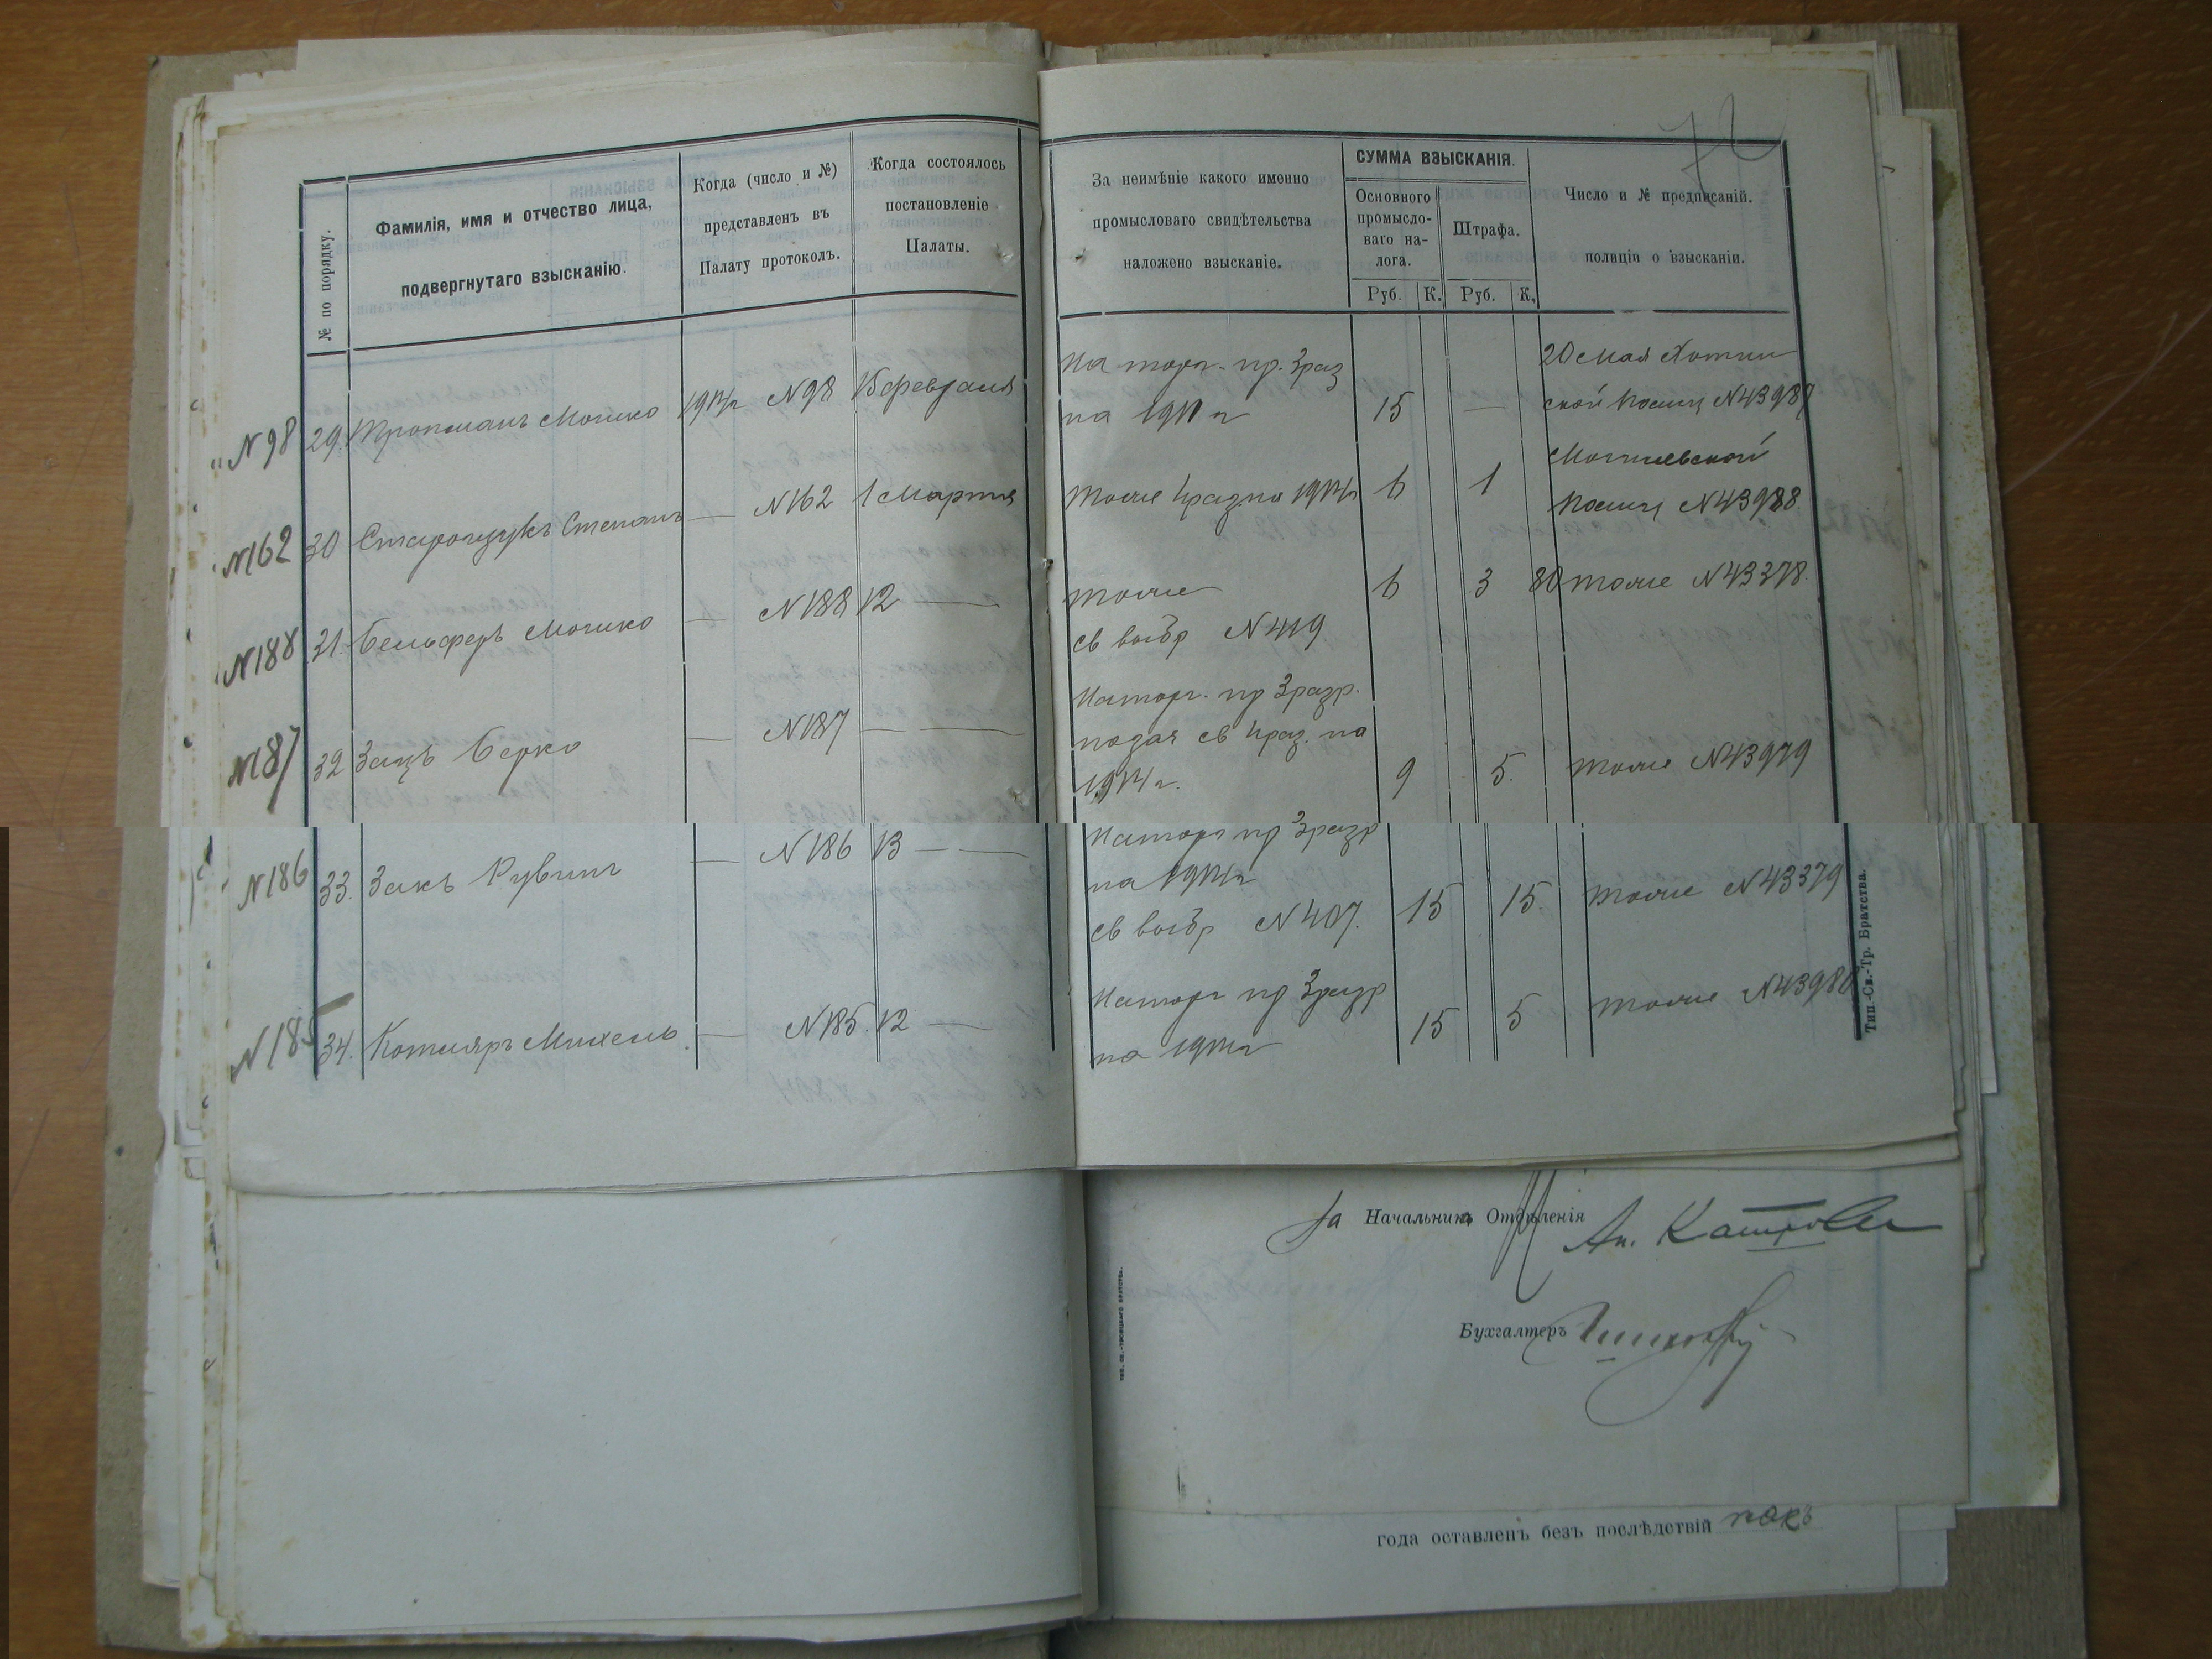 72
№ по порядку.
Фамилія, имя и отчество лица,
подвергнутаго взысканію.
Когда (число и №)
представленъ въ
Палату протоколъ.
Когда состоялось
постановленіе
Палаты.
За неимѣніе какого именно
промысловаго свидѣтельства
наложено взысканіе.
СУММА ВЗЫСКАНІЯ.
Основного
промысло-
ваго на-
лога.
Штрафа.
Руб. К. Руб. К.
Число и № предписаній.
полиціи о взысканіи.
N98 29. Тропманъ Мошко 1914 г N98 15 февраля
На торг. пр. 3 раз
на 1914 г 15 —
20 Мая Хотин
ской Полиц N43987
N162 30 Степанъ — N162 1 Марта
Тоже 4 раз. на 1914 г 6 1
Могилевской
Полиц N43988
N188 31. Бельферъ Мошко — N188 12 —
Тоже 6 3 80 тоже N43378.
св выбр N419
N187 32 Зацъ Берко — N187 — —
На торг. пр 3 разр.
подая св 4 раз. на
1914 г. 9 5. тоже N43979
N186 33. Закъ Рувин — N186 13 — —
На торг пр 3 разр
на 1914 г
св выбр N407. 15 15. тоже N43379
N185 34. Котляръ Михель. — N185. 12 —
На торг пр 3 разр
на 1914 г 15 5 тоже N43980
Тип.-Св.-Тр. Братства.
За Начальника Отдѣленія
Бухгалтеръ
года оставленъ безъ послѣдствій какъ